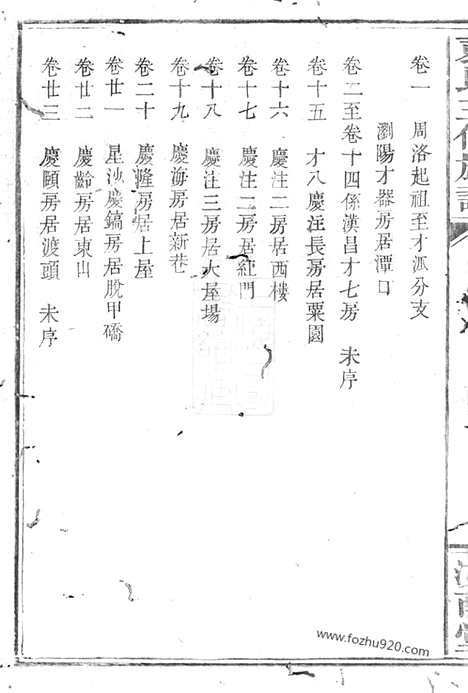 卷一　周洛起祖至才派分支
瀏陽才器房居潭口
卷二至卷十四係漢昌才七房　未序
卷十五　才八慶注長房居粟園
卷十六　慶注二房居西樓
卷十七　慶注二房居紅門
卷十八　慶注三房居大屋場
卷十九　慶海房居新巷
卷二十　慶隆房居上屋
卷廿一　星沙慶鎬房居脫甲礄
卷廿二　慶齡房居東山
卷廿三　慶頤房居渡頭　未序
www.fozhu920.com